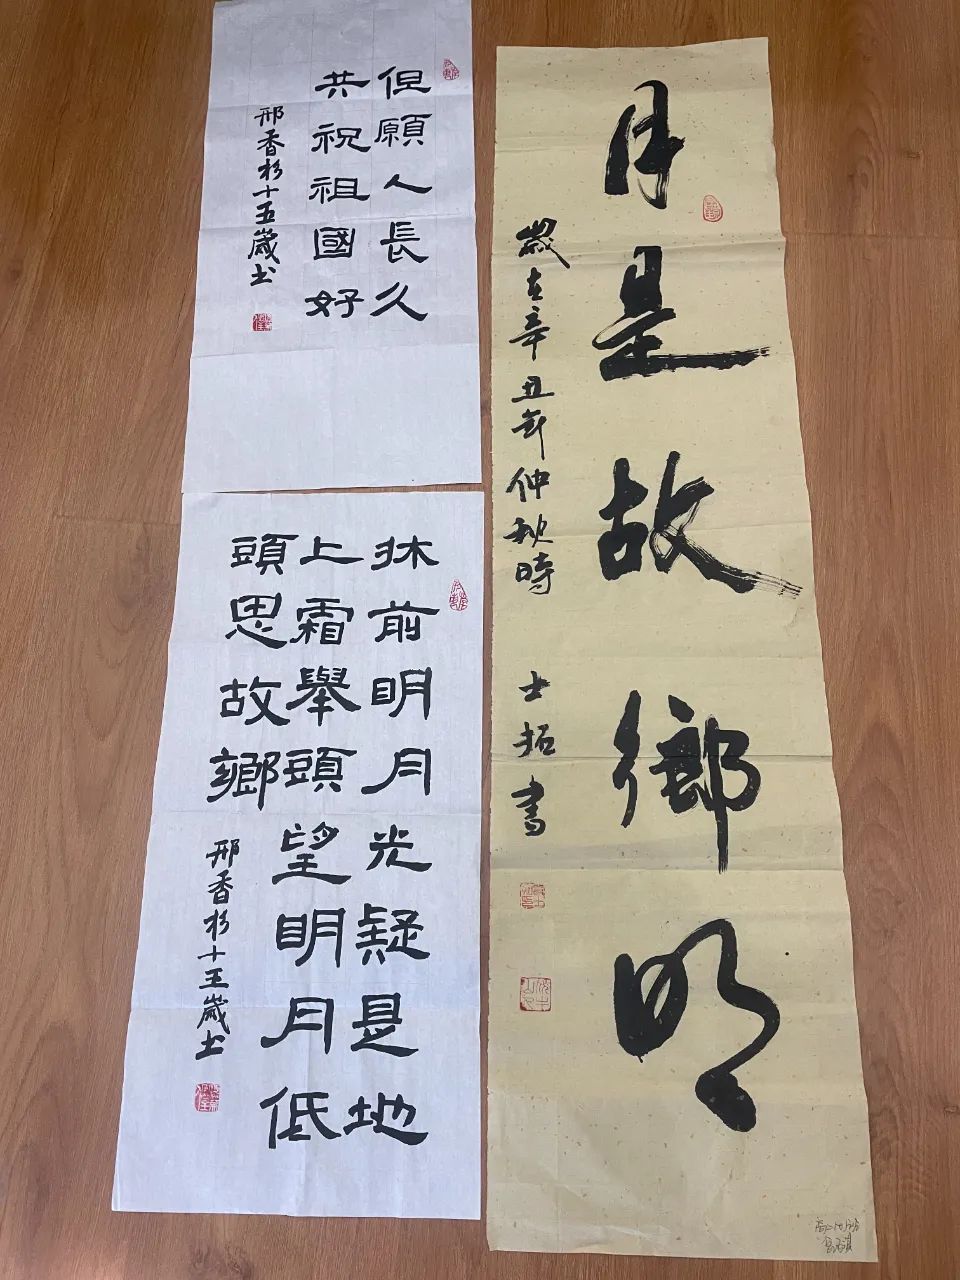 但願人長久
共祝祖國好
邢香杉十五歲书
床前明月光疑是地
上霜舉頭望明月低
頭思故鄉
邢香杉十五歲书
月是故鄉明
歲在辛丑年仲秋時
士拓書